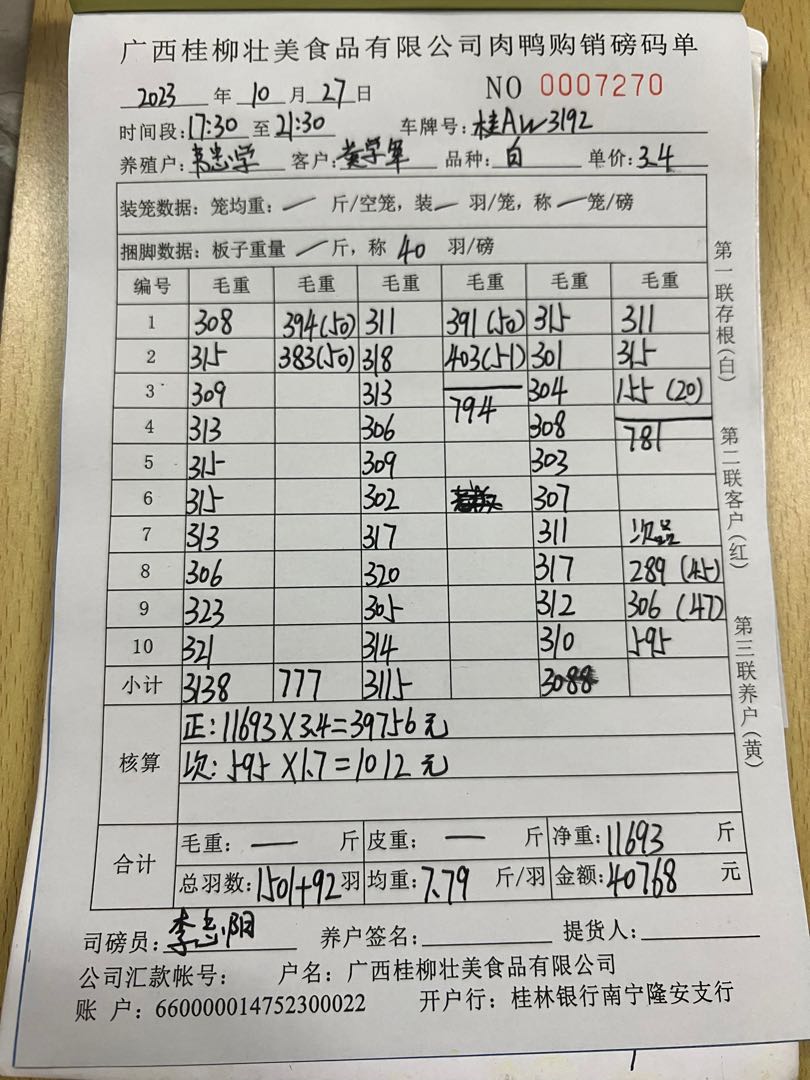 广西桂柳壮美食品有限公司肉鸭购销磅码单
2023 年 10 月 27 日 NO 0007270
时间段:17:30 至 21:30 车牌号:桂AW3192
养殖户:韦忠学 客户:黄学军 品种:白 单价:3.4
装笼数据:笼均重:— 斤/空笼,装— 羽/笼,称—笼/磅
捆脚数据:板子重量 — 斤,称 40 羽/磅
编号 毛重 毛重 毛重 毛重 毛重 毛重
1 308 394(50) 311 391(50) 315 311
2 315 383(50) 318 403(51) 301 315
3 309 313 304 155 (20)
4 313 306 794 308 781
5 315 309 303
6 315 302 307
7 313 317 311 次品
8 306 320 317 289 (45)
9 323 305 312 306 (47)
10 321 314 310 595
小计 3138 777 3115 3088
核算
正:11693×3.4=39756元
次:595×1.7=1012元
合计
毛重:— 斤 皮重:— 斤 净重:11693 斤
总羽数:1501+92羽 均重:7.79 斤/羽 金额:40768 元
司磅员:李忠阳 养户签名: 提货人:
公司汇款帐号: 户名:广西桂柳壮美食品有限公司
账 户:660000014752300022 开户行:桂林银行南宁隆安支行
第一联存根(白)
第二联客户(红)
第三联养户(黄)